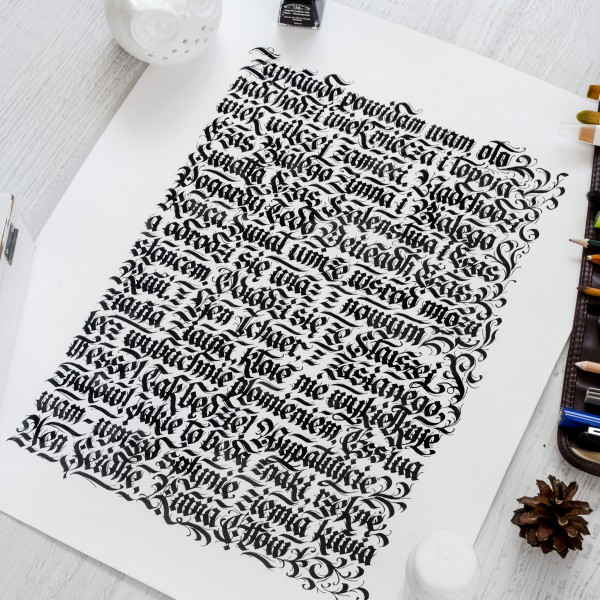 Zaprawdę powiadam wam oto
nadchodzi wiek miecza i topora
wiek wilczej zamieci Nadchodzi
Czas Białego Zimna i Białego
Światła Czas Szaleństwa i Czas
Pogardy Tedd Deireadh Czas
Końca Świat umrze wśród mrozu
a odrodzi się wraz z nowym
słońcem Odrodzi się ze Starszej
Krwi z Hen Ichaer z zasianego
ziarna ziarna które nie wykiełkuje
lecz wybuchnie płomieniem Esstua
th esse! Tak będzie! Wypatrujcie
znaków! Jakie to będą znaki rzeknę
wam - wprzód spłynie ziemia krwią
Aen Seidhe Krwią Elfów